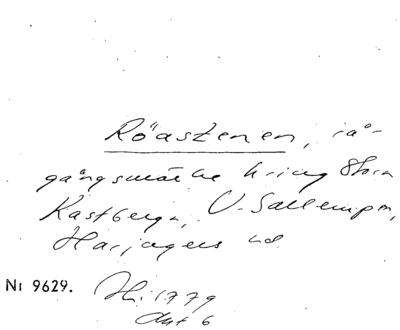 Röastenen, rå-
gångsmärke kring Stora
Kastberga, V. Sallerup,
Harjagers hd.
Nr 9629. 1779
Akt 6